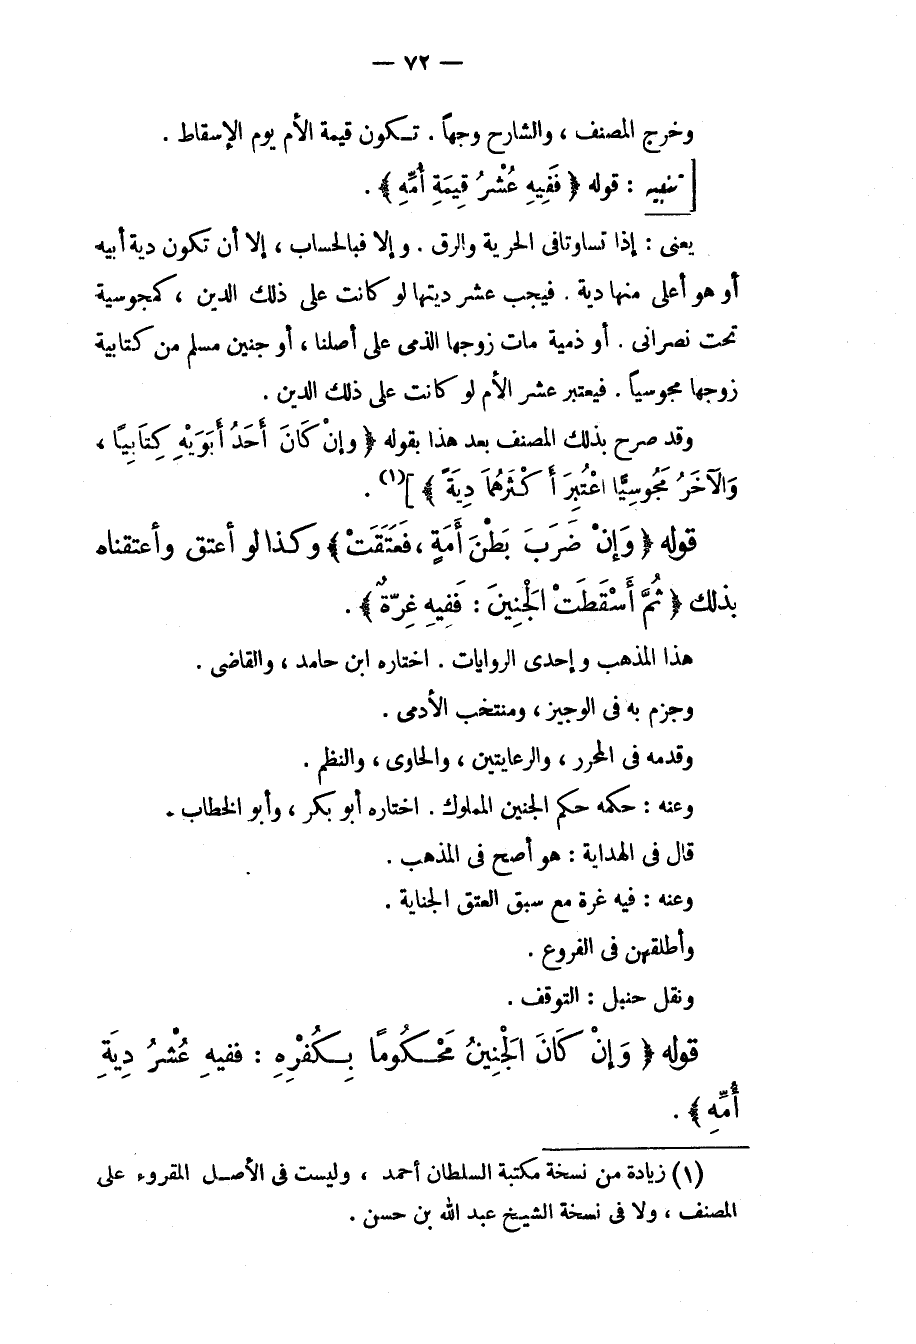 — ٧٢ —
وخرج المصنف ، والشارح وجهاً . تكون قيمة الأم يوم الإسقاط .
[ تنبيه : قوله ﴿ فَفِيهِ عُشْرُ قِيمَةِ أُمِّهِ ﴾ .
يعنى : إذا تساوتا فى الحرية والرق . وإلا فبالحساب ، إلا أن تكون دية أبيه
أو هو أعلى منها دية . فيجب عشر ديتها لو كانت على ذلك الدين ، كمجوسية
تحت نصرانى . أو ذمية مات زوجها الذمى على أصلنا ، أو جنين مسلم من كتابية
زوجها مجوسياً . فيعتبر عشر الأم لو كانت على ذلك الدين .
وقد صرح بذلك المصنف بعد هذا بقوله ﴿ وإنْ كَانَ أَحَدُ أَبَوَيْهِ كِتَابِيًّا ،
وَالآخَرُ مَجُوسِيًّا اعْتُبِرَ أَكْثَرُهُمَا دِيَةً ﴾ ](١) .
قوله ﴿ وَإِنْ ضَرَبَ بَطْنَ أَمَةٍ ، فَعَتَقَتْ ﴾ وكذا لو أعتق وأعتقناه
بذلك ﴿ ثُمَّ أَسْقَطَتْ الْجَنِينَ : فَفِيهِ غُرَّةٌ ﴾ .
هذا المذهب وإحدى الروايات . اختاره ابن حامد ، والقاضى .
وجزم به فى الوجيز ، ومنتخب الأدمى .
وقدمه فى المحرر ، والرعايتين ، والحاوى ، والنظم .
وعنه : حكمه حكم الجنين المملوك . اختاره أبو بكر ، وأبو الخطاب .
قال فى الهداية : هو أصح فى المذهب .
وعنه : فيه غرة مع سبق العتق الجناية .
وأطلقهن فى الفروع .
ونقل حنبل : التوقف .
قوله ﴿ وَإِنْ كَانَ الْجَنِينُ مَحْكُومًا بِكُفْرِهِ : ففيهِ عُشْرُ دِيَةِ
أُمِّهِ ﴾ .
(١) زيادة من نسخة مكتبة السلطان أحمد ، وليست فى الأصل المقروء على
المصنف ، ولا فى نسخة الشيخ عبد الله بن حسن .